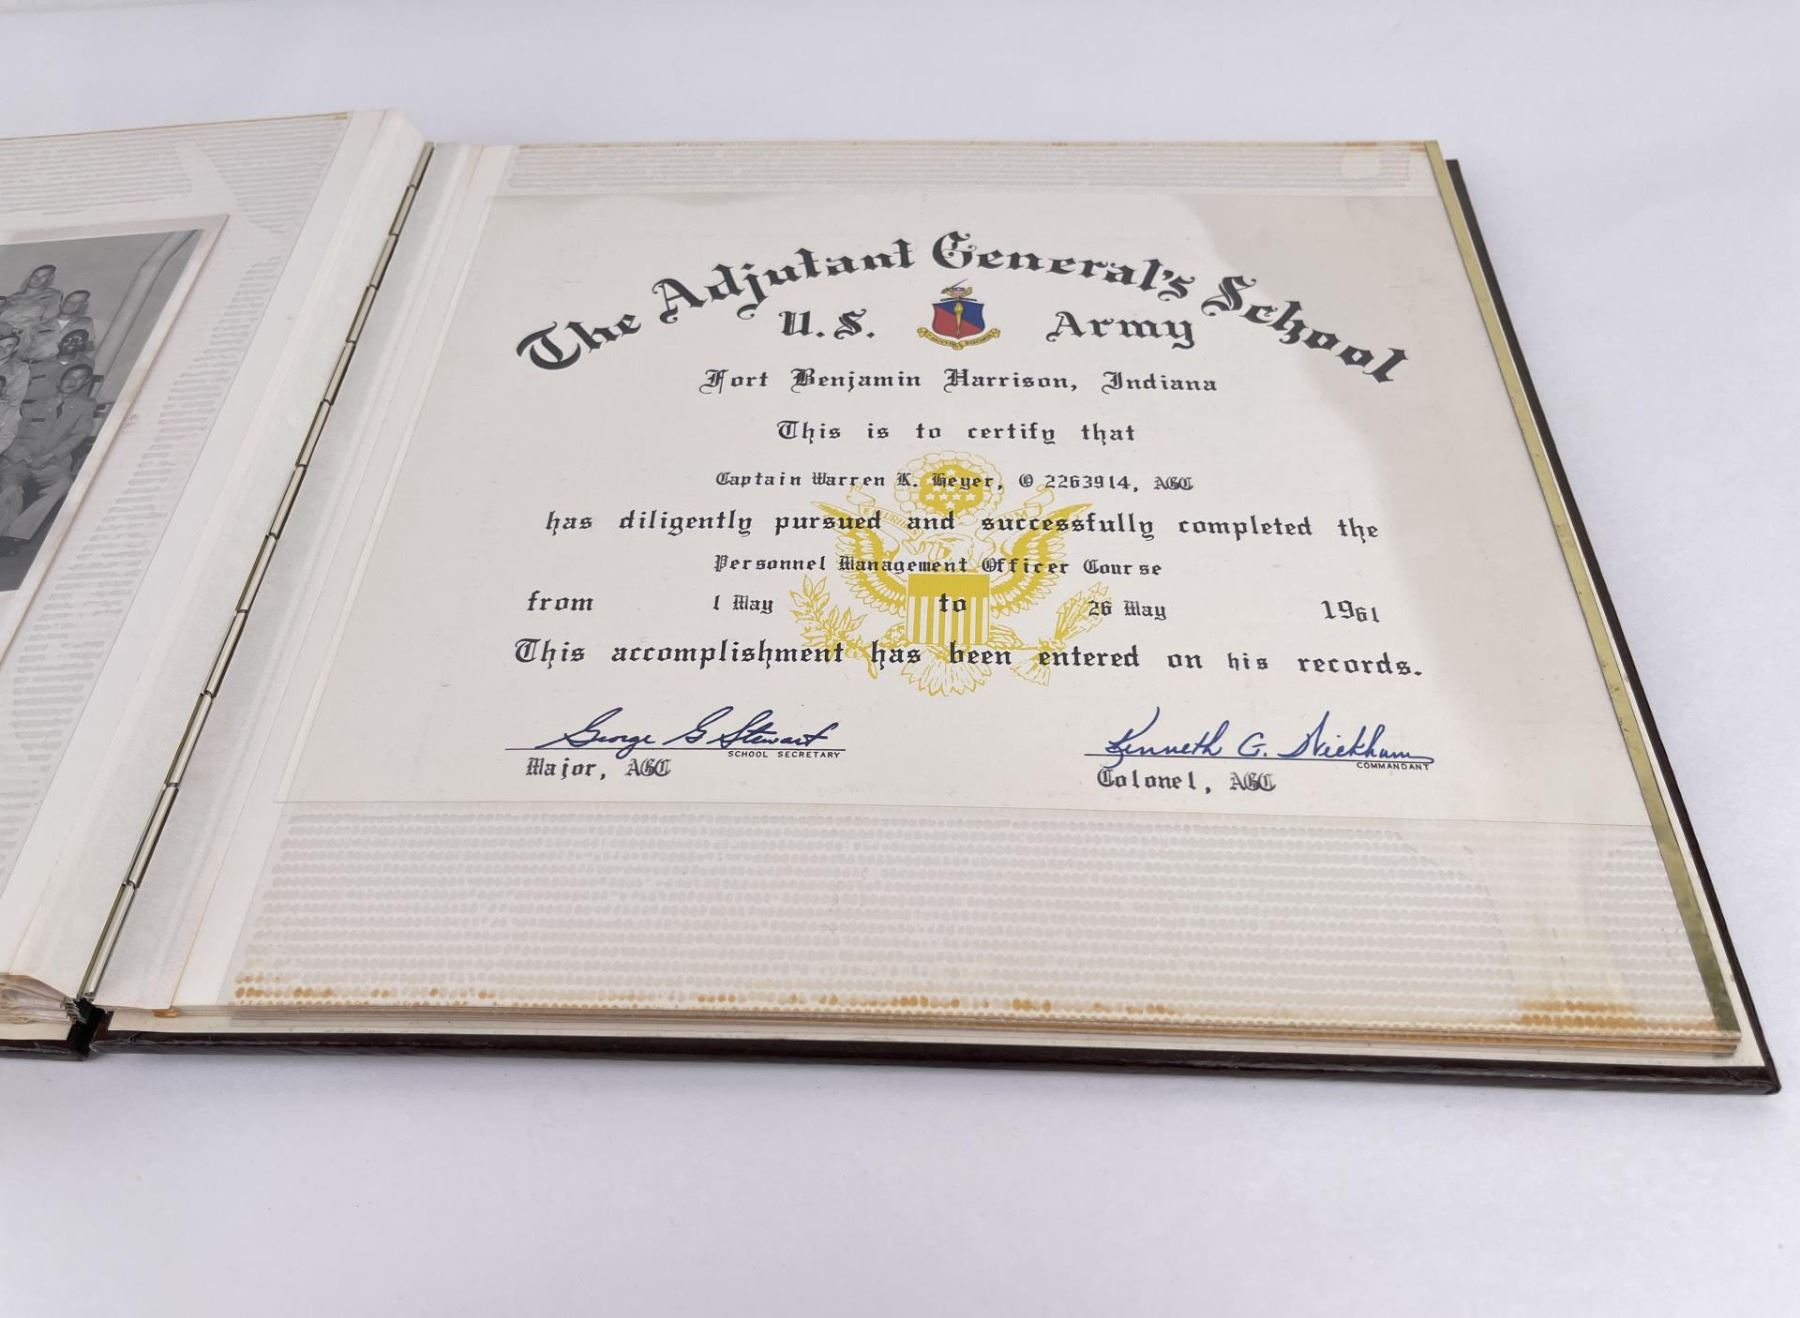 The Adjutant General's School
U.S. Army
Fort Benjamin Harrison, Indiana
This is to certify that
Captain Warren K. Heyer, O 2263914, AGC
has diligently pursued and successfully completed the
Personnel Management Officer Course
from 1 May to 26 May 1961
This accomplishment has been entered on his records.
George G Stewart Kenneth G. Wickham
SCHOOL SECRETARY COMMANDANT
Major, AGC Colonel, AGC